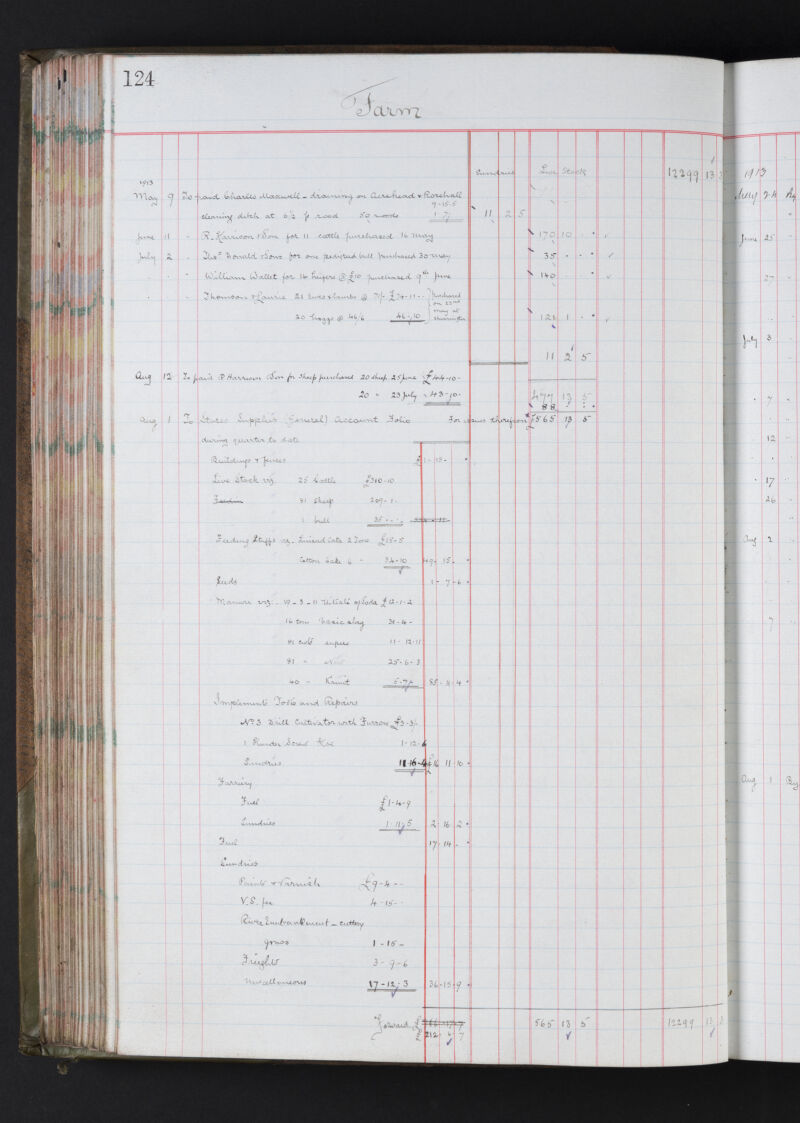 124
Farm
Sundries Live Stock 12299 13
1913
May 9 To paid Charlls Maxwell - draining on Acrehead & Rosehall
9-15-5
cleaning ditch at 6½ p rood 50 roods 1-7/- 11 2 5
June 11 - R. Harrison & Son for 11 cattle purchased 16 May 170 10
July 2 - Thos Donald & Sons for one pedigree bull purchased 30 May 35
William Wallet for 14 heifers @ £10 purchased 9th June 140
Thomson & Laurie 21 ewes & lambs @ 71/- £74-11-- purchased
on 23rd
May at
20 hoggs @ 46/6 46-10 121 1
11 2 5
Aug 12 To paid R Harrison & Son for sheep purchased 20 sheep 25 June £44-10-
20 " 23 July 43-10- 477 13 5
88
Aug 1 To Stores Supplies (General) Account Folio For issues therefrom £565 13 5
during quarter to date
Buildings & fences £1-15-
Live Stock viz. 25 Cattle £310-10
81 Sheep 209-1-
1 bull 35---
Feeding Stuffs viz. Linseed Cake 2 Tons £15-5
Cotton Cake 6 - 34-10 49-15-
Seeds 1-7-6
Manures viz. 19-3-11 Nitrate of Soda £12-1-2
16 tons Basic slag 31-4-
81 cwts supers 11-12-11
81 " 25-6-3
40 - Kainit 5-7/- 85-11-4
Implements Tools and Repairs
No 3 Drill Cultivator with Furrow £3-3/-
1 Screw 1-12-6
Sundries 11-16-4 £16 11-10
Farriery
Fuel £1-4-9
Sundries 1-11-5 2-16-2
Fuel 17-14-
Sundries
Paints & Varnish £9-4--
V.S. fee 4-15--
River Embankment - cutting
grass 1-15-
Freights 3-9-6
Miscellaneous 17-12-3 36-15-9
Forward £
£212-6-7 565 13 5 12299 13
1913
July 24
June 25
27
July 3
7
12
17
26
Aug 2
7
Aug 1 By